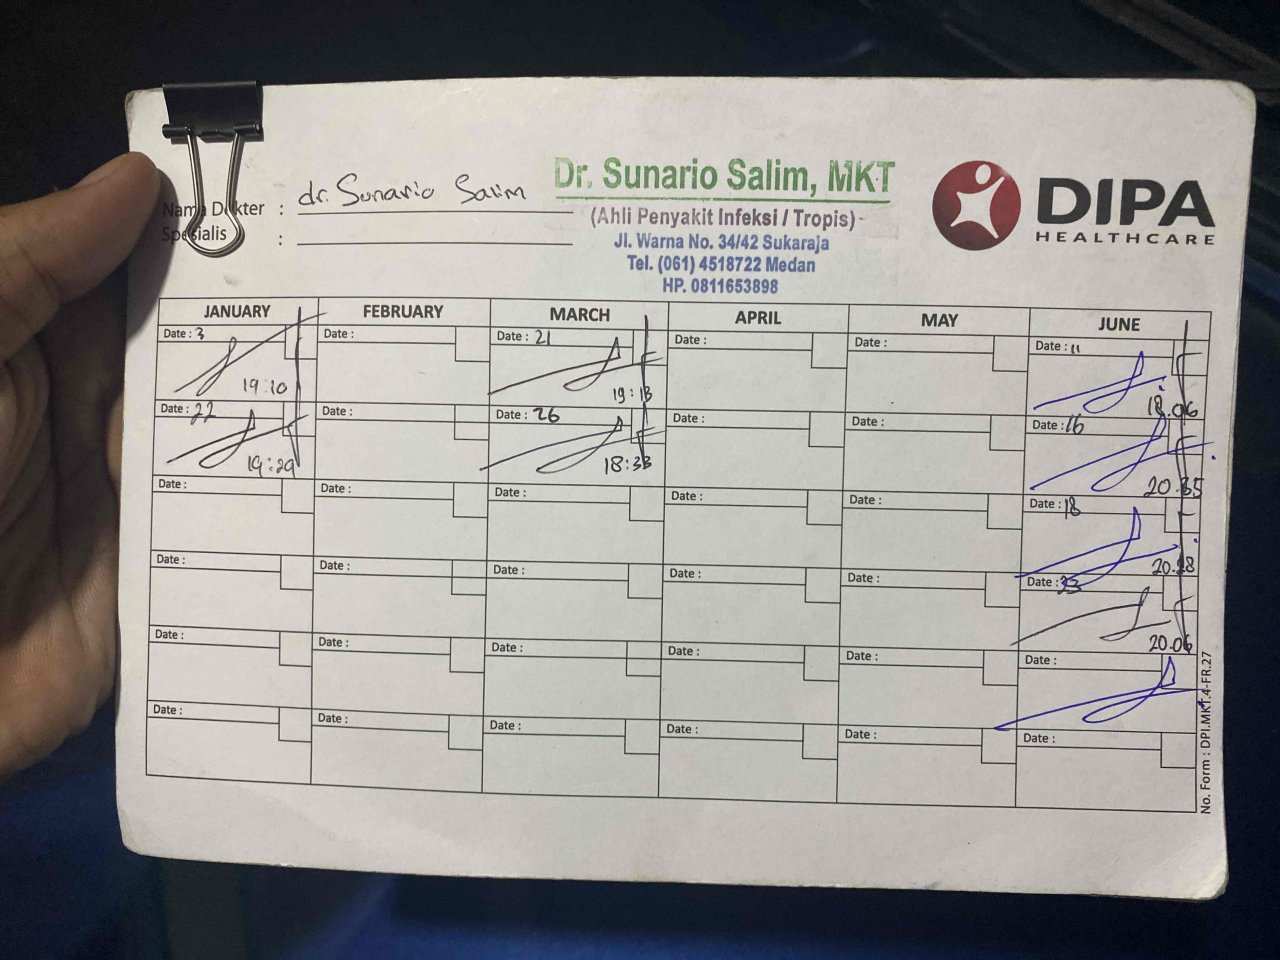 Nama Dokter : dr. Sunario Salim
Spesialis :
Dr. Sunario Salim, MKT
(Ahli Penyakit Infeksi / Tropis)
Jl. Warna No. 34/42 Sukaraja
Tel. (061) 4518722 Medan
HP. 0811653898
DIPA
HEALTHCARE
JANUARY FEBRUARY MARCH APRIL MAY JUNE
Date : 3 Date : Date : 21 Date : Date : Date : 11
19:10 19:13 18.06
Date : 22 Date : Date : 26 Date : Date : Date : 16
19:29 18:33 20.35
Date : Date : Date : Date : Date : Date : 18
20.28
Date : Date : Date : Date : Date : Date :
20.06
Date : Date : Date : Date : Date : Date :
Date : Date : Date : Date : Date : Date :
No. Form : DPI.MKT.4-FR.27